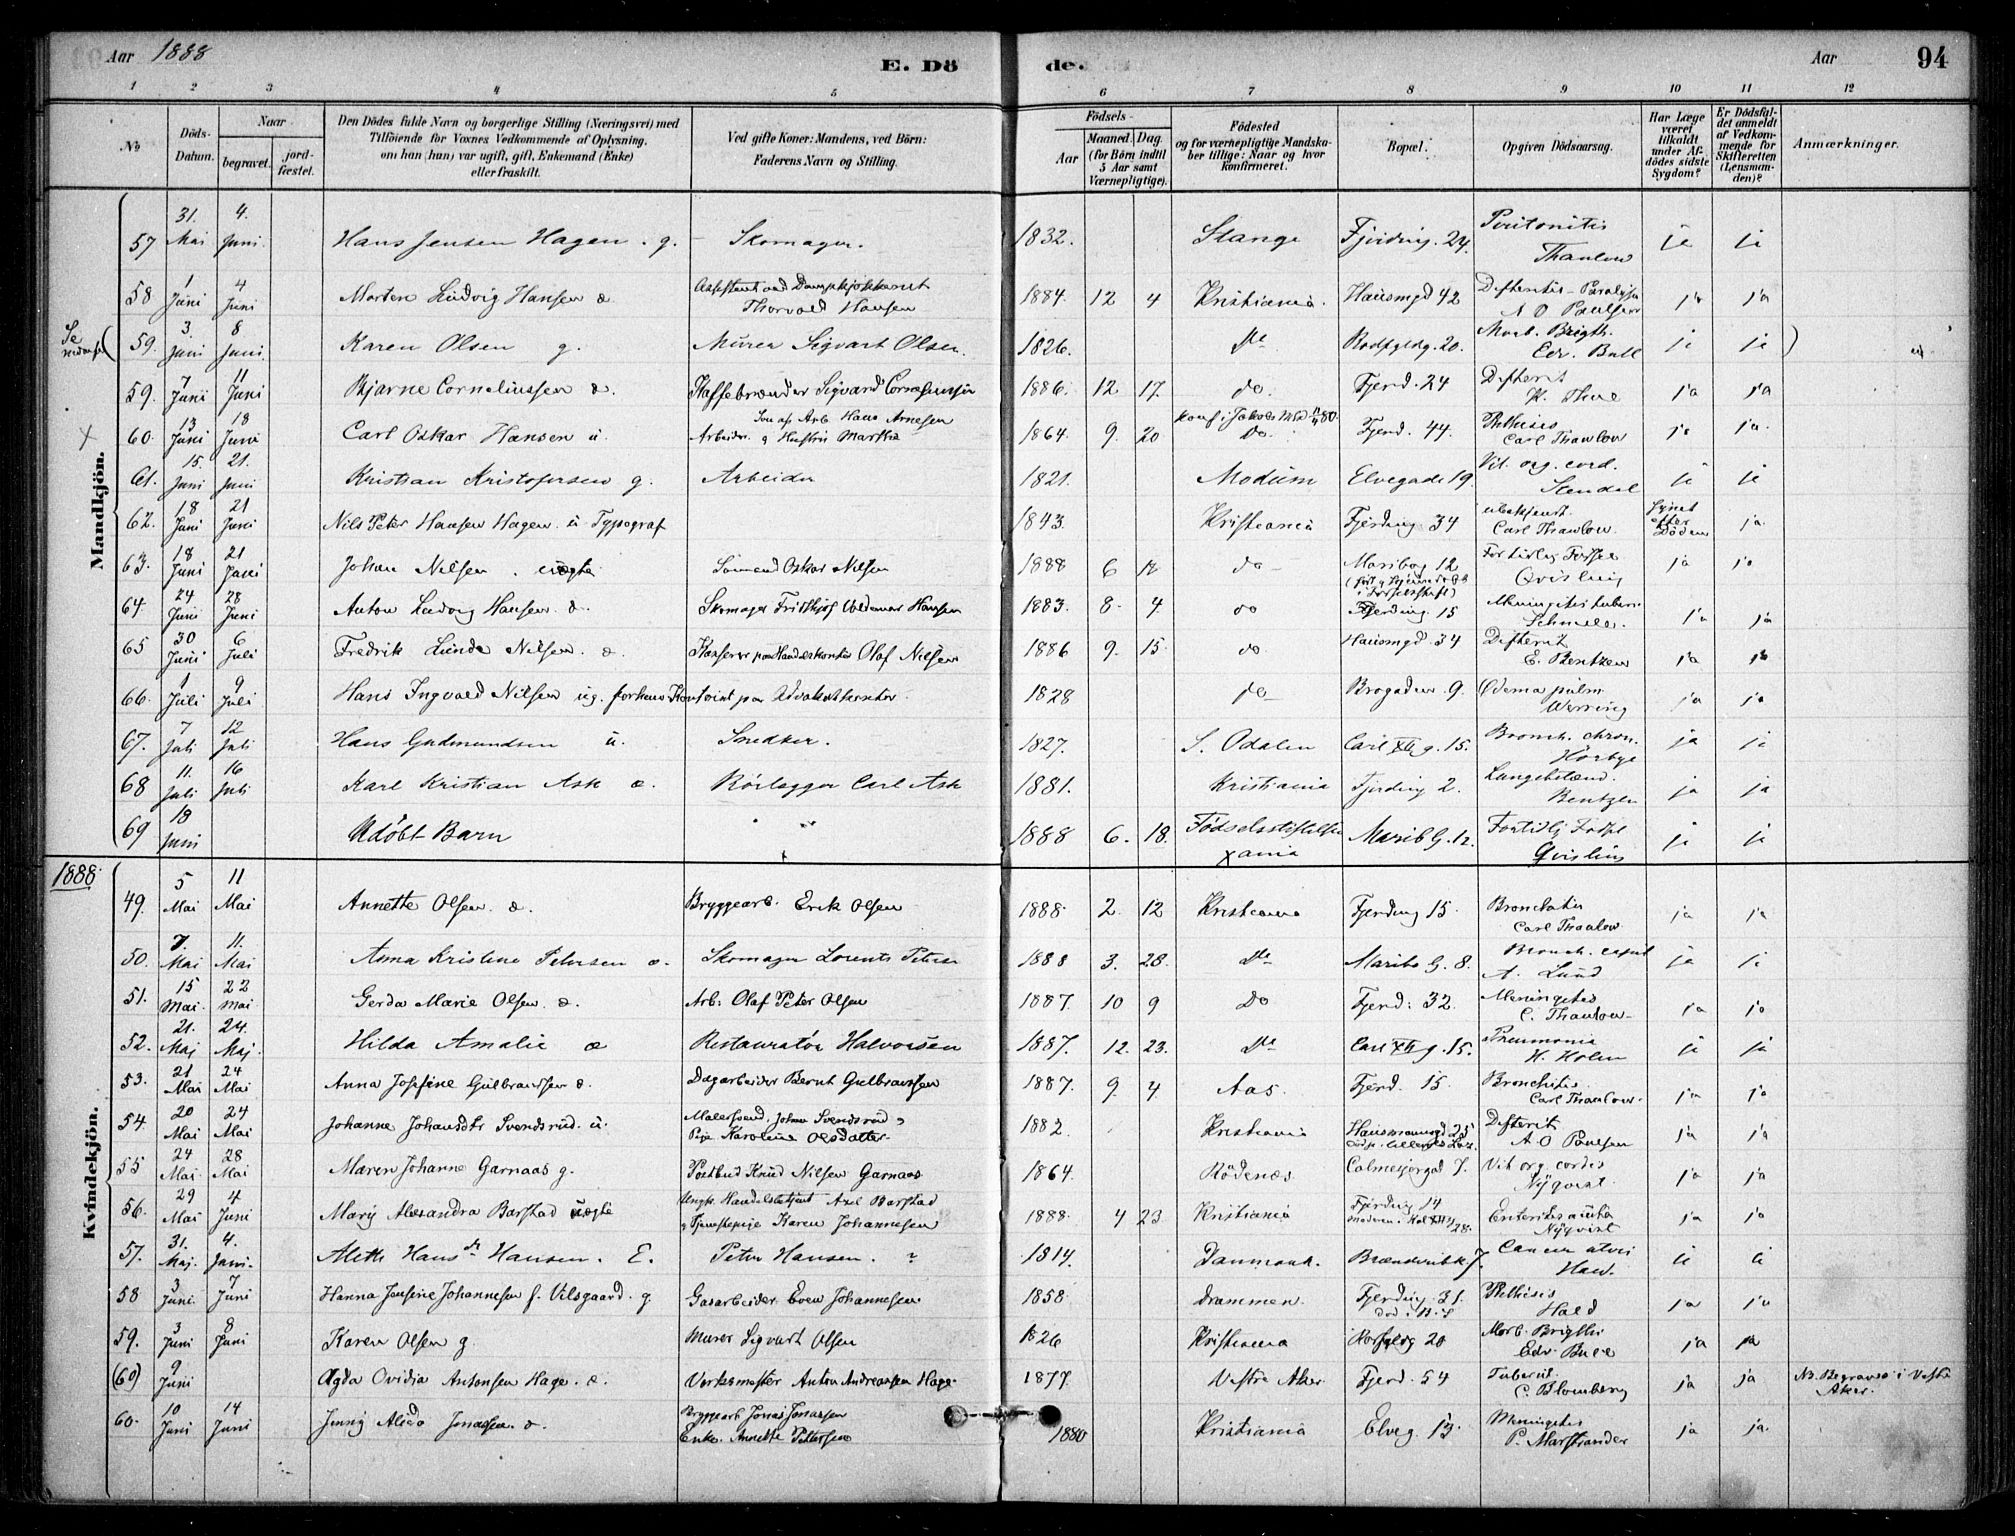 Aar 1888
E. Dö de.
Aar
94
1 2 3 4 5 6 7 8 9 10 11 12
No
Döds-Datum.
Naar
begravet.
jord-fæstet.
Den Dödes fulde Navn og borgerlige Stilling (Næringsvei) med
Tilföiende for Voxnes Vedkommende af Oplysning,
om han (hun) var ugift, gift, Enkemand (Enke)
eller fraskilt.
Ved gifte Koner: Mandens, ved Börn:
Faderens Navn og Stilling.
Födsels-
Aar
Maaned. Dag.
(for Börn indtil
5 Aar samt
Værnepligtige).
Födested
og for værnepligtige Mandska-
ber tillige: Naar og hvor
konfirmeret.
Bopæl.
Opgiven Dödsaarsag.
Har Læge
været
tilkaldt
under Af-
dödes sidste
Sygdom?
Er Dödsfal-
det anmeldt
af Vedkom-
mende for
Skifteretten
(Lensman-
den)?
Anmærkninger.
Mandkjön.
57 31. Mai 4. Juni Hans Jensen Hagen. g. Skomager. 1832. Stange Fjerding. 24. Peritonitis Thaulow ja ja
58 1 Juni 4 Juni Morten Ludvig Hansen æ Assistent ved Dampkjøkkenet Thorvald Hansen 1884. 12 4 Kristiania. Hausmgd 42 Difteritis - Paralyse A O Paulsen ja ja
Se nedenfor
59. 3. Juni 8 Juni Karen Olsen g. Murer Sigvart Olsen. 1826. Do Rodfyldg. 20. Morb. Brigth. Edv. Bull ja ja
59. 7 Juni 11 Juni Bjarne Corneliussen æ. Kaffebrænder Sigvard Corneliussen 1886. 12 17. do. Fjerd. 24 Difterit K. Thue ja ja
60. 13 Juni 18 Juni Carl Oskar Hansen u. Arbeider. Søn af Arb Hans Arnesen g Hustru Marthe 1864. 9. 20 Konf i Jakobs Do Fjerd. 44. Phthisis Carl Thaulow ja ja.
61. 15. Juni 21. Juni Kristian Kristofersen g. Arbeider 1821. Modum Elvegade 19. Vit. org. cord. Stendal ja ja
62. 18 Juni 21 Juni Nils Peter Hansen Hagen. u Typograf 1843. Kristiania Fjerding 34 ubekjendt. Carl Thaulow. Synet efter Døden ja.
63. 18 Juni 21 Juni Johan Nilsen. uægte Sømand Oskar Nilsen 1888 6 18 do Maribog 12 For tidlig Fødsel Qvisling ja ja
64 24 Juni 28 Juni Anton Ludvig Hansen æ. Skomager Fridthjof Valdemar Hansen 1883. 8. 4. do Fjerding. 15 Meningitis tuberc. ja ja
65 30 Juni 6 Juli Fredrik Lunde Nilsen. æ. Kasserer paa Handelskontor Olaf Nilsen 1886 9. 15. do Hausmgd. 34 Difterit E. Bentzen ja ja
66. 1 Juli 9 Juli Hans Ingvald Nilsen ug. forhenv. Kontorist paa Advokatkontor. 1828 do Brogaden. 9. Ødema pulm. Werring ja ja
67. 7 Juli 12 Juli Hans Gudmundsen u. Snedker. 1827. S. Odalen Carl XII g. 15. Bronch. chron. Hørbye ja ja
68 11. Juli 16 Juli Karl Kristian Ask æ. Rørlægger Carl Ask 1881. Kristiania Fjerding 2. Lungebetænd. Bentzen ja ja
69 18 Juni Udøbt Barn 1888 6. 18. Fødselsstiftelsen Xania Marib G. 12. For tidlig Fødsel Qvisling ja ja
1888
Kvindekjön.
49. 5 Mai 11 Mai Annette Olsen. æ. Bryggearb. Erik Olsen 1888 2. 12 Kristiania Fjerding 15. Bronchitis Carl Thaulow. ja ja
50. 7. Mai 11. Mai Anna Kristine Petersen æ. Skomager Lorents Petersen 1888 3. 28. Do Maribo G. 8. Bronch. capil A. Lund ja ja
51. 15 Mai. 22 Mai Gerda Marie Olsen. æ. Arb: Olaf Peter Olsen 1887. 10 9 Do Fjerd: 32. Meningitis C. Thaulow ja ja
52. 21. Maj 24. Maj. Hilda Amalie æ Restauratør Halvorsen 1887. 12. 23. Do Carl XII g. 15. Pneumonia H. Holm ja ja
53. 21 Mai 24 Mai Anna Josefine Gulbrandsen æ. Dagarbeider Bernt Gulbransen 1887. 9. 4. Aas. Fjerd. 15. Bronchitis Carl Thaulow. ja ja
54 20 Mai 24 Mai Johanne Johansdtr Svendsrud. u. Malersvend. Johan Svendsrud Pige Karoline Olsdatter 1882. Kristiania Hausmannsgd 25 Difterit A O Paulsen ja ja
55 24 Mai 28 Mai Maren Johanne Garnaas g. Postbud Knud Nilsen Garnaas 1864. Rødenæs. Calmeiergad 7. Vit org cordis Nyqvist. ja ja
56. 29 Mai 4 Juni Mary Alexandra Barstad uægte Ungk. Handelsbetjent Axel Barstad g Tjenestepige Karen Johannesen 1888. 4 23. Kristiania Fjerding 14 Moderen: Kal XII g 28. Enteritis acuta Nyqvist ja ja
57. 31. Maj. 4. Juni. Aleth Hans dr Hansen. E. Peter Hansen. ? 1814. Danmark. Cancer Hald. ja ja
58 3 Juni 7 Juni Hanna Jensine Johannesen f. Vilsgaard. g Gasarbeider Even Johannesen 1858 Drammen. Fjerding 31. Phthisis Hald ja ja
59. 3 Juni 8 Juni Karen Olsen g. Murer Sigvart Olsen 1826 Kristiania Rodfyldg 20 Morb. Brigthi Edv. Bull ja ja
(60) 9 Juni Agda Ovidia Antonsen Hage. æ. Verksmester Anton Andreassen Hage 1877. Vestre Aker. Fjerd. 54 Tubercul. C. Blomberg ja ja NB Begravet i Vestre Aker.
60. 10 Juni 14 Juni Jenny Alida Jonassen. æ. Bryggearb Jonas Jonassen Enke. Annette Pettersen 1880 Kristiania Elveg. 13. Meningitis P. Marstrander ja ja.